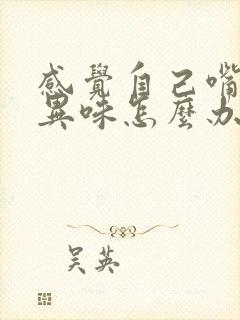 感覺自己嘴
異味怎麼办
吴英